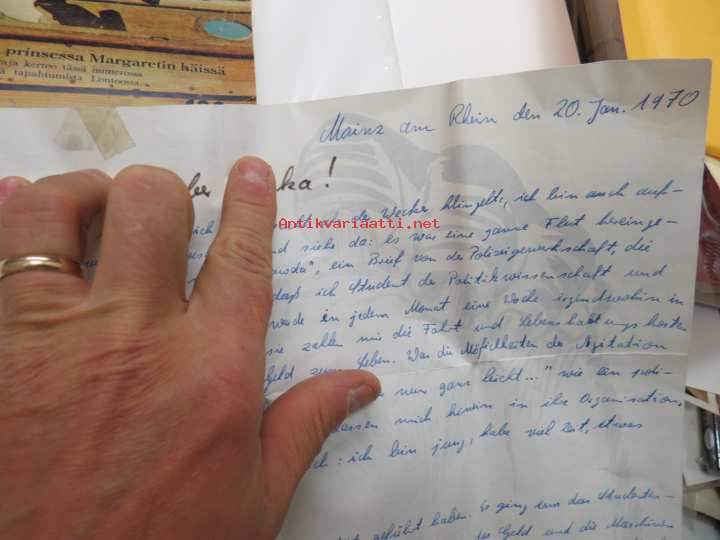 prinsessa Margaretin häissä
raja kertoo tässä numerossa
tapahtumista Lontoossa
Mainz am Rhein den 20. Jan. 1970
ka!
der Wecker klingelt, ich bin auch auf-
Antikvariaatti.net
nd siehe da: es war eine ganze Flut hereinge-
ein Brief von der Polizeigewerkschaft, die
daß ich Student der Politikwissenschaft und
in jedem Monat eine Woche irgendwohin in
sie zahlen mir die Fahrt und Lebenshaltungskosten
Geld zum Leben. Was die Möglichkeiten der Agitation
nur ganz leicht..." wie ein poli-
lassen mich herein in ihre Organisation,
ch: ich bin jung, habe viel Zeit, etwas
geführt haben. Es ging um das Studenten-
das Geld und die Maschinen